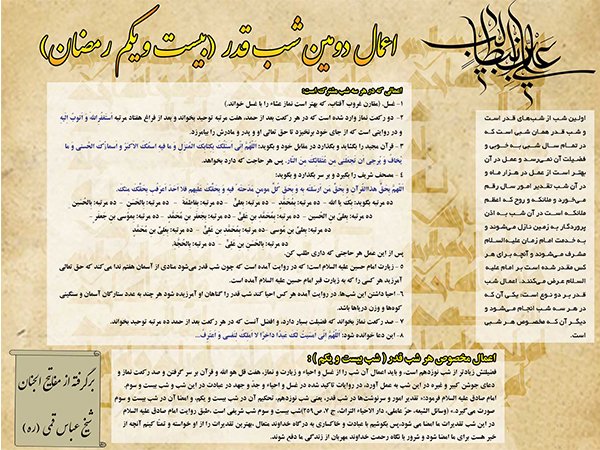 اعمال دومین شب قدر (بیست و یکم رمضان)
علی بن ابیطالب
اولین شب از شب‌های قدر است
و شب قدر همان شبی است که
در تمام سال شبی به خوبی و
فضیلت آن نمی‌رسد و عمل در آن
بهتر است از عمل در هزار ماه و
در آن شب تقدیر امور سال رقم
می‌خورد و ملائکه و روح که اعظم
ملائکه است در آن شب به اذن
پروردگار به زمین نازل می‌شوند و
به خدمت امام زمان علیه‌السلام
مشرف می‌شوند و آنچه برای هر
کس مقدر شده است بر امام علیه
السلام عرض می‌کنند. اعمال شب
قدر بر دو نوع است: یکی آن که
در هر سه شب انجام می‌شود و
دیگر آن که مخصوص هر شبی
است.
اعمالی که در هر سه شب مشترک است:
۱- غسل. (مقارن غروب آفتاب، که بهتر است نماز عشاء را با غسل خواند.)
۲- دو رکعت نماز وارد شده است که در هر رکعت بعد از حمد، هفت مرتبه توحید بخواند و بعد از فراغ هفتاد مرتبه استغفرالله و اتوب الیه
و در روایتی است که از جای خود برنخیزد تا حق تعالی او و پدر و مادرش را بیامرزد.
۳- قرآن مجید را بگشاید و بگذارد در مقابل خود و بگوید: اللهم انی اسئلک بکتابک المنزل و ما فیه اسمک الاکبر و اسماؤک الحسنی و ما
یخاف و یرجی ان تجعلنی من عتقائک من النار. پس هر حاجت که دارد بخواهد.
۴- مصحف شریف را بگیرد و بر سر بگذارد و بگوید:
اللهم بحق هذا القرآن و بحق من ارسلته به و بحق کل مومن مدحته فیه و بحقک علیهم فلا احد اعرف بحقک منک.
ده مرتبه بگوید: بک یا الله - ده مرتبه: بمحمد - ده مرتبه: بعلی - ده مرتبه: بفاطمة - ده مرتبه: بالحسن - ده مرتبه: بالحسین
ده مرتبه: بعلی بن الحسین - ده مرتبه: بمحمد بن علی - ده مرتبه: بجعفر بن محمد - ده مرتبه: بموسی بن جعفر -
ده مرتبه: بعلی بن موسی - ده مرتبه: بمحمد بن علی - ده مرتبه: بعلی بن محمد
ده مرتبه: بالحسن بن علی - ده مرتبه: بالحجة.
پس از این عمل هر حاجتی که داری طلب کن.
۵- زیارت امام حسین علیه السلام است؛ که در روایت آمده است که چون شب قدر می‌شود منادی از آسمان هفتم ندا می کند که حق تعالی
آمرزید هر کسی را که به زیارت قبر امام حسین علیه السلام آمده است.
۶- احیا داشتن این شب‌ها. در روایت آمده هر کس احیا کند شب قدر را گناهان او آمرزیده شود هر چند به عدد ستارگان آسمان و سنگینی
کوه‌ها و وزن دریاها باشد.
۷- صد رکعت نماز بخواند که فضیلت بسیار دارد، و افضل آنست که در هر رکعت بعد از حمد ده مرتبه توحید بخواند.
۸- این دعا خوانده شود: اللهم انی امسیت لک عبدا داخرا لا املک لنفسی و اعترف...
اعمال مخصوص هر شب قدر ( شب بیست و یکم ) :
فضیلتش زیادتر از شب نوزدهم است، و باید اعمال آن شب را از غسل و احیاء و زیارت و نماز، هفت قل هو الله و قرآن بر سر گرفتن و صد رکعت نماز و
دعای جوشن کبیر و غیره در این شب به عمل آورد. در روایات تاکید شده در غسل و احیاء و جد و جهد در عبادت در این شب و شب بیست و سوم.
امام صادق علیه السلام فرمود:« تقدیر امور و سرنوشت‌ها در شب قدر، یعنی شب نوزدهم، تحکیم آن در شب بیست و یکم، و امضا آن در شب بیست و سوم
صورت می‌گیرد.» (وسائل الشیعه، حر عاملی، دار الاحیاء التراث، ج ۷، ص ۲۵۹)شب بیست و سوم شب شریفی است ،طبق روایت امام صادق علیه السلام
در این شب تقدیرات ما امضا می شود،پس بکوشیم با عبادت و خاکساری به درگاه خداوند متعال ،بهترین تقدیرات را از او خواسته و تمنا کنیم آنچه از
خیر هست برای ما امضا شود و شرور با نگاه رحمت خداوند مهربان از زندگی ما دفع شوند.
برگرفته از مفاتیح الجنان
شیخ عباس قمی (ره)